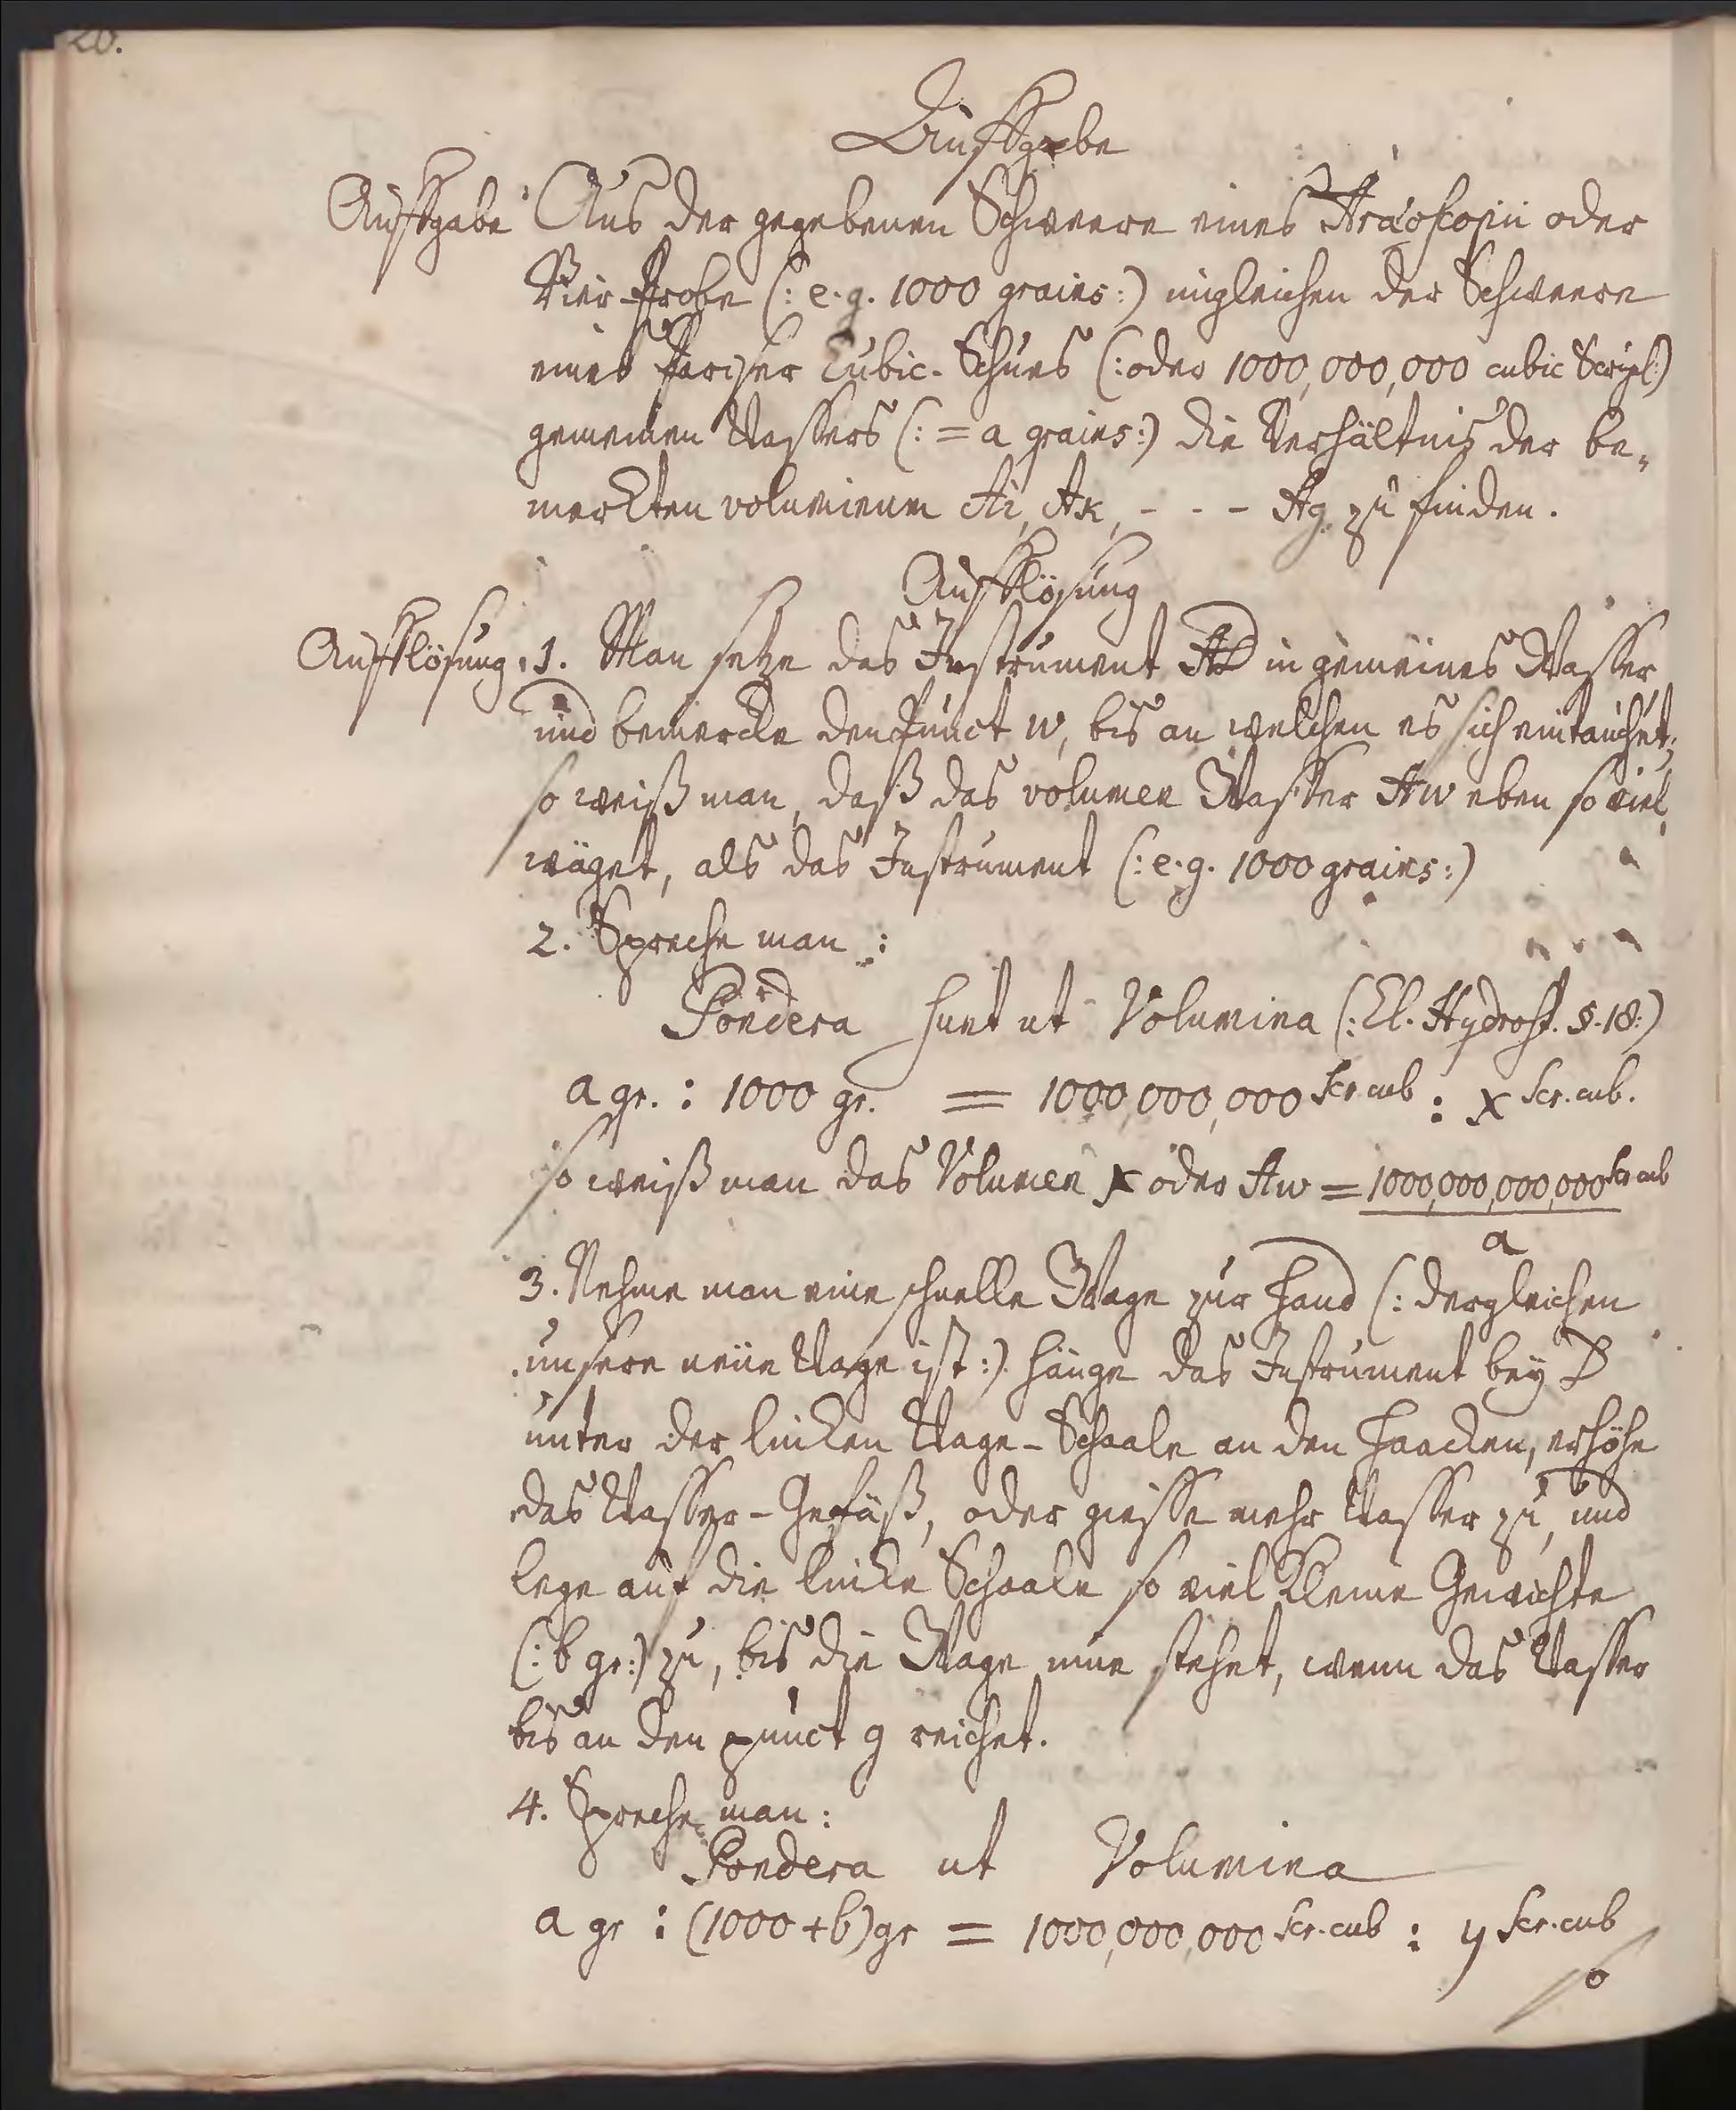 20.
Auffgabe
Auffgabe Aus der gegebenen Schweere eines Aræoscopii oder
Bier-Probe (: e.g. 1000 grains:) imgleichen der Schweere
eines Pariser Cubic-Schues (: oder 1000,000,000 cubic Scrupl:)
gemeinen Wassers (: = a grains:) die Verhältnis der be-
merckten voluminum Ai, Ak, - - - Ag zu finden.
Aufflösung
Aufflösung. 1. Man setze das Instrument AD in gemeines Wasser
und bemercke den Punct w, bis an welchen es sich eintauchet;
so weiß man, daß das volumen Wasser Aw eben so viel
wäget, als das Instrument (: e.g. 1000 grains:)
2. Spreche man:
Pondera sunt ut Volumina (: El. Hydrost. §. 18:)
a gr. : 1000 gr. = 1000,000,000 scr. cub : x scr. cub.
so weiß man das Volumen x oder Aw = 1000,000,000,000 scr cub
a
3. Nehme man eine schnelle Wage zur Hand (: dergleichen
unsere neüe Wage ist:) hänge das Instrument bey D
unter der lincken Wage-Schaale an den Haacken, erhöhe
das Wasser-Gefäß, oder giesse mehr Wasser zu, und
lege auf die lincke Schaale so viel kleine Gewichte
(: b gr:) zu, bis die Wage inne stehet, wenn das Wasser
bis an den punct g reichet.
4. Spreche man:
Pondera ut Volumina
a gr : (1000 + b) gr = 1000,000,000 scr. cub : y scr. cub
so